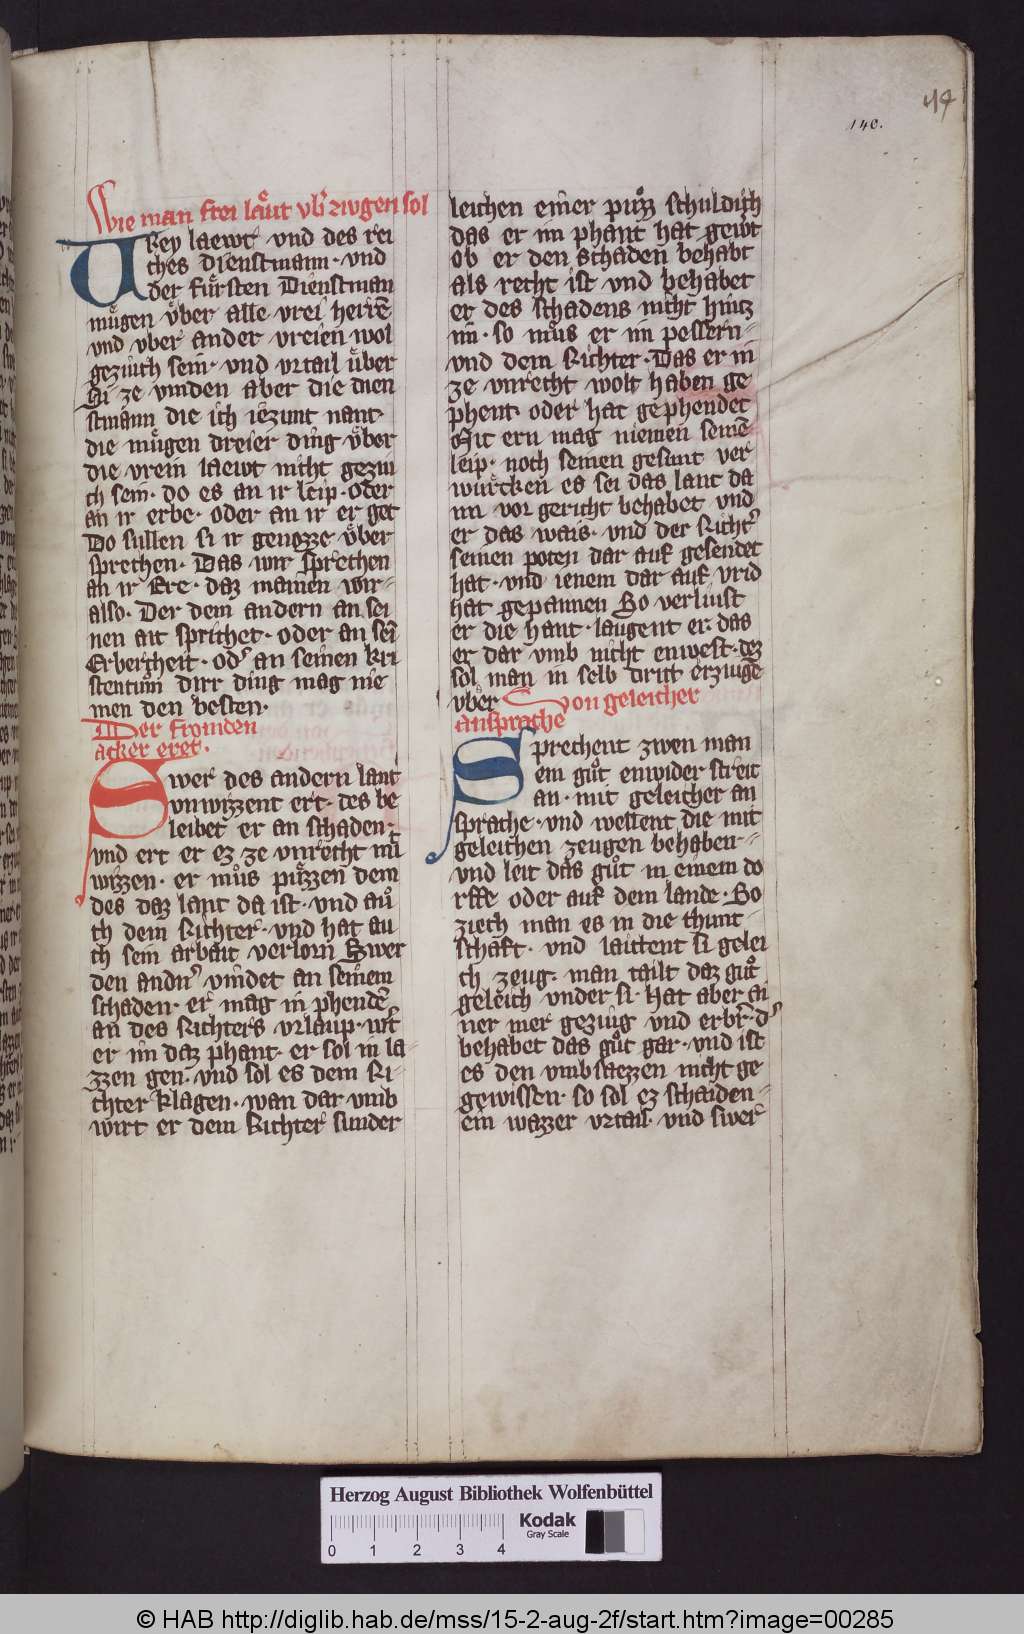 44
140.
Wie man frei laͤut vbˀ zwgen sol
Vrey laewt vnd des rei
ches dienstmann · vnd
der fuͤrsten Dienstman
muͤgen vͤber alle vrei herrē
vnd vber ander vreien wol
geziuch sein · vnd vrtail vͤber
Si ze vinden aber die dien
stmann die ich iezunt nant
die muͤgen dreier ding vͤber
die vrein laewt nicht geziu
ch sein · do es an ir leip · oder
an ir erbe · oder an ir er get
Do sullen si ir genozze vͤber
sprechen · Das wir sprechen
an ir Ere · daz mainen wir-
also · Der dem andern an sei
nen ait sprichet · oder an sei
Erbercheit · odˀ an seinen kri
stentum dirr ding mag nie
men den besten ·
Der fromden
acker eret ·
Swer des andern lant
vnwizzent ert · des be
leibet er an schaden ·
vnd ert er ez ze vnrecht mit
wizzen · er muͦs puͤzzen dem
des daz lant da ist · vnd auͦ
ch dem Richter · vnd hat au
ch sein arbait verlorn Swer
den andnˀ vindet an seinem
schaden · er mag in phendē
an des Richters vrlaup · nīt
er im daz phant · er sol in la-
zzen gen · vnd sol es dem Ri-
chter klagen · wan dar vmb
wirt er dem Richter sunder
leichen einer puͦzz schuldich
das er im phant hat gewt
ob er den schaden behabt
als recht ist vnd behabet
er des schadens nicht hintz
im · so muͦs er im pessern-
vnd dem Richter · Das er in
ze vnrecht wolt haben ge
phent · oder hat gephendet
Mit ern mag niemen seinē
leip · noch seinen gesunt ver
wuͤrcken es sei das lant da
im vor gericht behabet vnd
er das wais · vnd der Richtˀ
seinen poten dar auf gesendet
hat · vnd ienem dar auf vrid
hat gepannen So verliust
er die hant · laugent er · das
er dar vmb nicht enwest · dez
sol man in selb dritt erziugē
vber Von geleicher
ansprache
Sprechent zwen man
ein guͦt enwider streit
an · mit geleicher an
sprache · vnd wellent die mit
geleichen zeugen behaben-
vnd leit das guͦt in einem do
rffe oder auf dem lande · So
ziech man es in die chunt-
schaft · vnd lautent si gelei
ch zeug · man tailt daz guͦt
geleich vnder si · hat aber ai
ner mer geziug vnd erbr · dˀ
behabet das guͦt gar · vnd ist
es den vmbsaezzen nicht ge
gewissen · so sol ez schaiden-
ein wazzer vrtail · vnd swer
Herzog August Bibliothek Wolfenbüttel
Kodak
Gray Scale
0 1 2 3 4
© HAB http://diglib.hab.de/mss/15-2-aug-2f/start.htm?image=00285